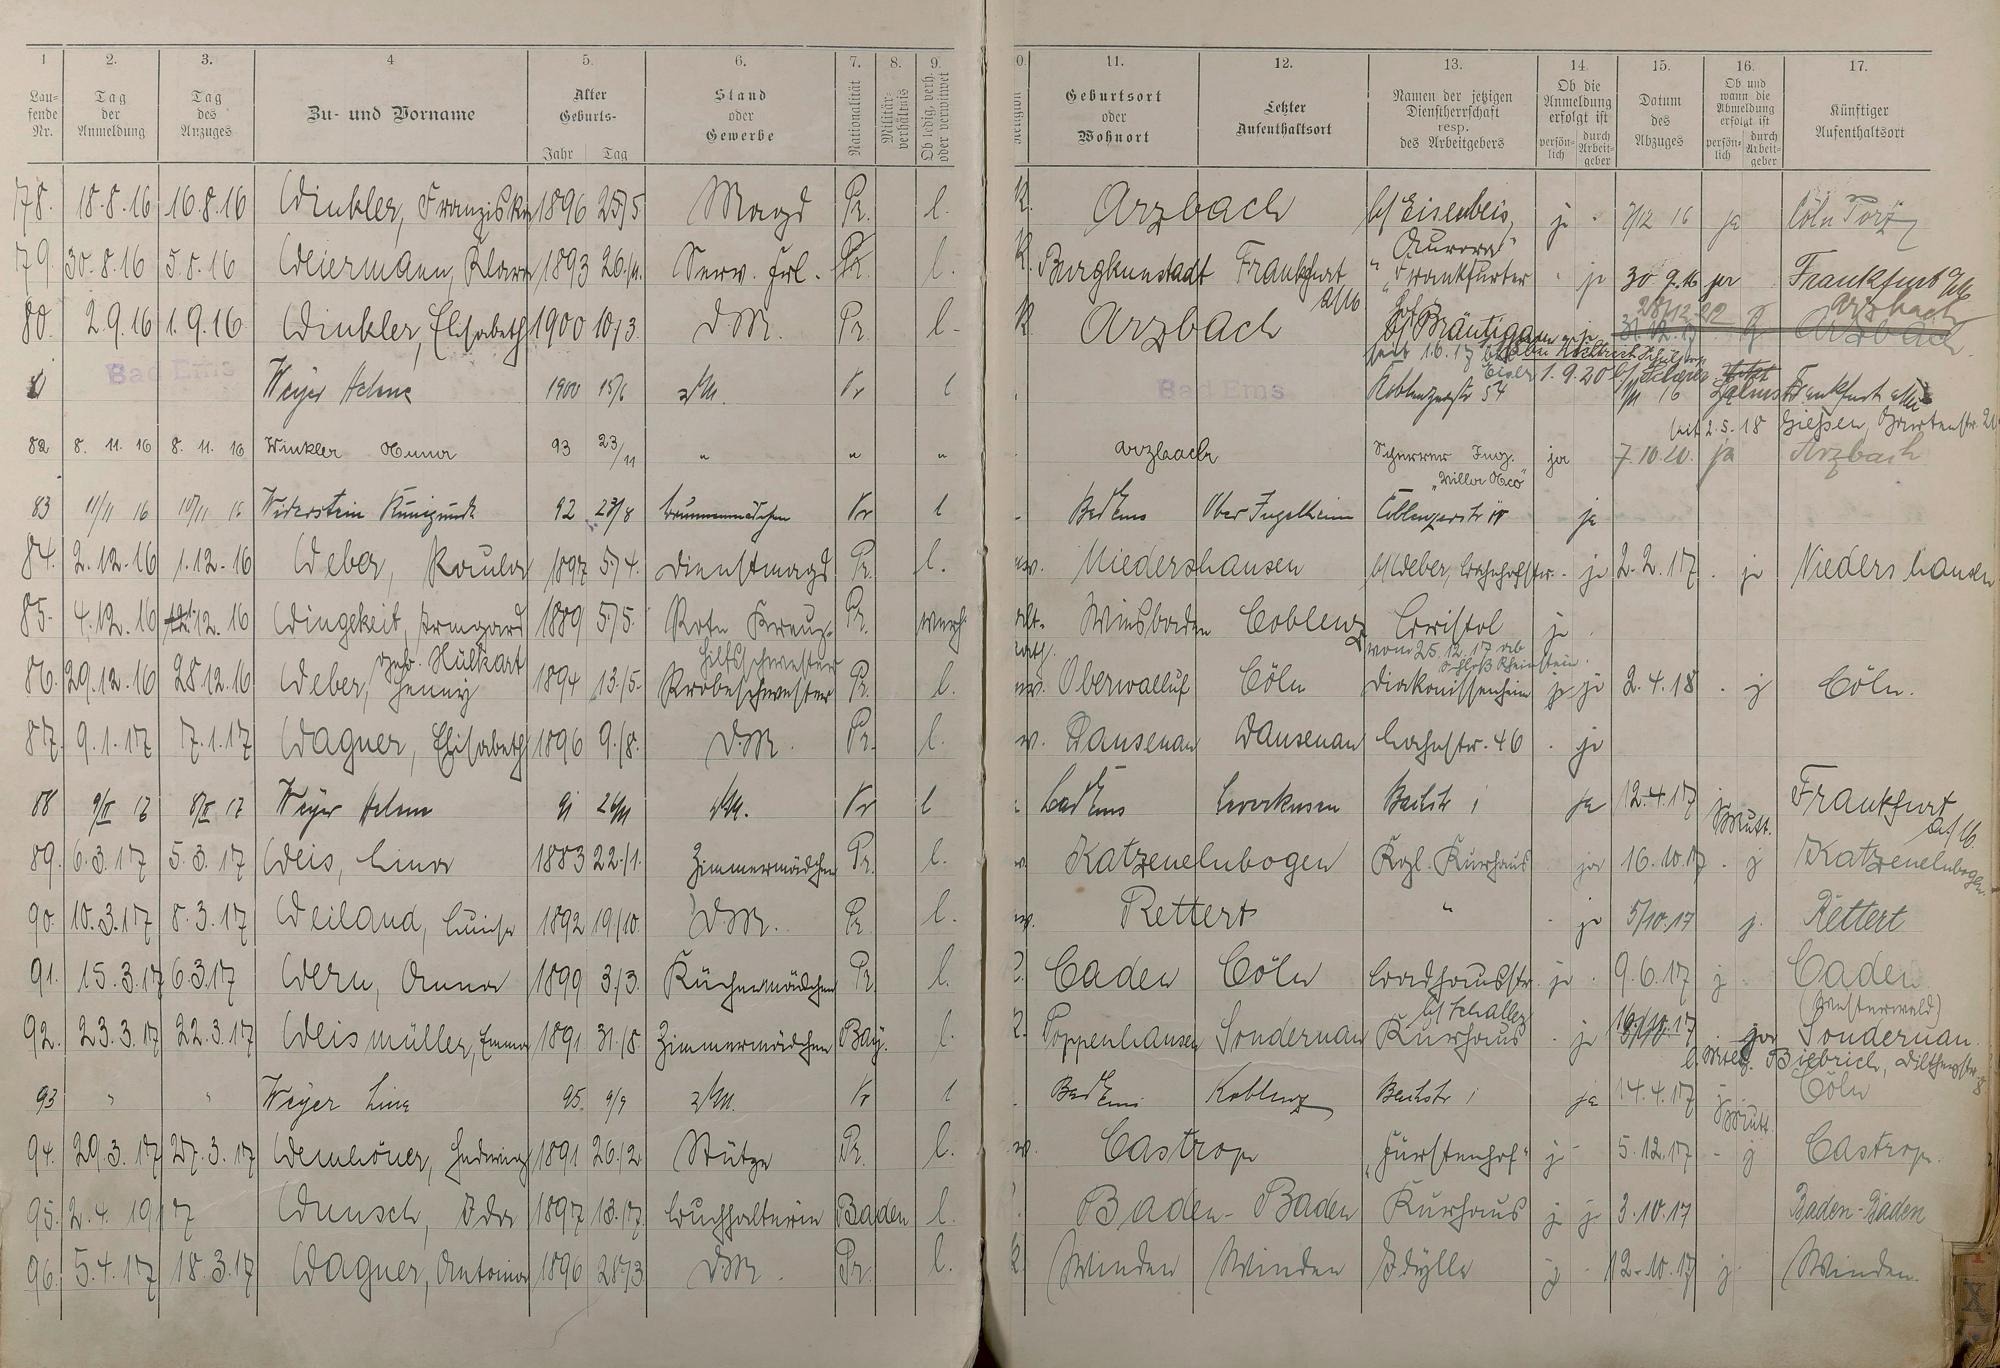 1 2. 3. 4 5. 6. 7. 8. 9. 0. 11. 12. 13. 14. 15. 16. 17.
Lau-
fende
Nr.
Tag
der
Anmeldung
Tag
des
Anzuges
Zu- und Vorname
Alter
Geburts-
Jahr Tag
Stand
oder
Gewerbe
Nationalität
Militär-
verhältnis
Ob ledig, verh.
oder verwitwet
Religion
Geburtsort
oder
Wohnort
Letzter
Aufenthaltsort
Namen der jetzigen
Dienstherrschaft
resp.
des Arbeitgebers
Ob die
Anmeldung
erfolgt ist
persön-
lich
durch
Arbeit-
geber
Datum
des
Abzuges
Ob und
wann die
Abmeldung
erfolgt ist
persön-
lich
durch
Arbeit-
geber
Künftiger
Aufenthaltsort
78. 18.8.16 16.8.16 Winkler, Franziska 1896 25/5 Magd Pr. l. K. Arzbach b/Eisenbeis, ja 7/12 16 ja Cöln
"Aurora"
79. 30.8.16 5.8.16 Weiermann, Klara 1893 Serv. Frl. Pr. l. K. Burgkunstadt Frankfurt a/M " Frankfurter " ja 30.9.16 ja Frankfurt a/M
80. 2.9.16 1.9.16 Winkler, Elisabeth 1900 10/3 DM. Pr. l. K. Arzbach b/Bräutigam 28/12.20 Arzbach
Arzbach
Bad Ems Weyer Helene 1900 15/6 Pr l Bad Ems Koblenzerstr 54 1.9.20 Frankfurt
seit 2.5.18 Gießen, Gartenstr.
82 8. 11. 16 8. 11. 16 Winkler Anna 93 23/11 " " " Arzbach ja 7.10.20. ja Arzbach
83 11/11 16 10/11 16 Widerstein Kunigunde 92 Brunnenmädchen Pr l Bad Ems Ober Ingelheim Coblenzerstr ja
84. 2.12.16 1.12.16 Weber, Paula 1897 5/4. Dienstmagd Pr. l. ev. Niedershausen b/Weber, Bahnhofstr. ja 2.2.17 ja Niedershausen
85. 4.12.16 12.16 Wingekeit, Irmgard 1889 5/5. Rote Kreuz- Pr. verh. Wiesbaden Coblenz Bristol ja
geb. Hülkart hilfsschwester vom 25.12.17 ab
Schloß Rheinstein.
86. 29.12.16 28.12.16 Weber, Jenny 1894 13/5. Probeschwester Pr. l. ev. Oberwalluf Cöln Diakonissenheim 2.4.18 j Cöln.
87. 9.1.17 7.1.17 Wagner, Elisabeth 1896 9/8. DM. Pr. l. ev. Dausenau Dausenau Lahnstr. 46 ja
88 9/II 17 8/II 17 Weyer Helene 91 Pr l Bad Ems Leverkusen Bachstr 1 ja 12.4.17 j Mutt. Frankfurt a/M.
89. 6.3.17 5.3.17 Weis, Lina 1883 22/1. Zimmermädchen Pr. l. Katzenelnbogen Kgl. Kurhaus ja 16.10.17 j Katzenelnbogen
90. 10.3.17 8.3.17 Weiland, Luise 1892 19/10. DM. Pr. l. ev. Rettert " ja 5/10.17 j. Rettert
91. 15.3.17 6.3.17 Wern, Anna 1899 3/3. Küchenmädchen Pr. l. Caden Cöln Badhausstr. ja 9.6.17 j Caden
b/Schaller (Westerwald)
92. 23.3.17 22.3.17 Weismüller, Emma 1891 31/8 Zimmermädchen Bay. l. Poppenhausen Sondernau Kurhaus ja ja Sondernau.
Biebrich,
93 " " Weyer Lina 95. 9/9 Pr l Bad Ems Koblenz Bachstr 1 ja 14.4.17 j Mutt. Cöln
94. 29.3.17 27.3.17 Wemhöner, Hedwig 1891 26/2. Stütze Pr. l. Castrop "Fürstenhof" j 5.12.17 - j Castrop.
95. 2.4. 1917 Wunsch, Ida 1897 Buchhalterin Baden l. Baden-Baden Kurhaus j j 3.10.17 Baden-Baden
96. 5.4.17 18.3.17 Wagner, Antonia 1896 28/3 DM. Pr. l. K. Winden Winden Idylle j 12.10.17 j Winden.